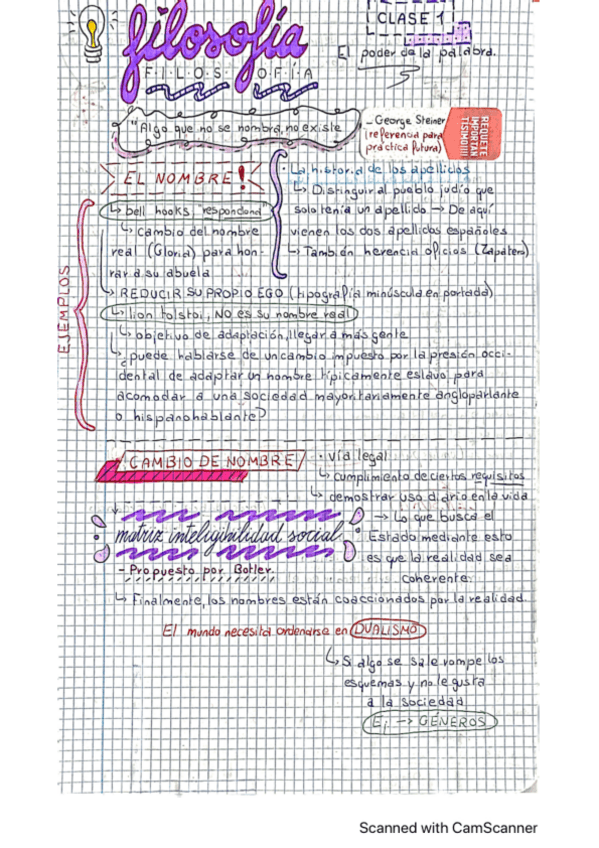 filosofía
FILOSOFÍA
CLASE 1
El poder de la palabra.
"Algo que no se nombra, no existe
- George Steiner
(referencia para
práctica futura)
REQUETE
IMPORTAN
TÍSIMO!!!!
EL NOMBRE!
· La historia de los apellidos
↳ Distinguir al pueblo judío que
solo tenía un apellido → De aquí
vienen los dos apellidos españoles
↳ También herencia oficios (Zapatero)
EJEMPLOS
↳ bell hooks "respondona"
↳ cambio del nombre
real (Gloria) para hon-
rar a su abuela
↳ REDUCIR SU PROPIO EGO (tipografía minúscula en portada)
↳ lion tolstoi, NO es su nombre real
↳ objetivo de adaptación, llegar a más gente
↳ ¿puede hablarse de un cambio impuesto por la presión occi-
dental de adaptar un nombre típicamente eslavo para
acomodar a una sociedad mayoritariamente angloparlante
o hispanohablante?
CAMBIO DE NOMBRE
· vía legal
↳ cumplimiento de ciertos requisitos
↳ demostrar uso diario en la vida
matriz inteligibilidad social
- Propuesto por Botler.
→ Lo que busca el
Estado mediante esto
es que la realidad sea
coherente.
↳ Finalmente, los nombres están coaccionados por la realidad.
El mundo necesita ordenarse en DUALISMO
↳ Si algo se sale rompe los
esquemas y no le gusta
a la sociedad
Ej → GÉNEROS
Scanned with CamScanner